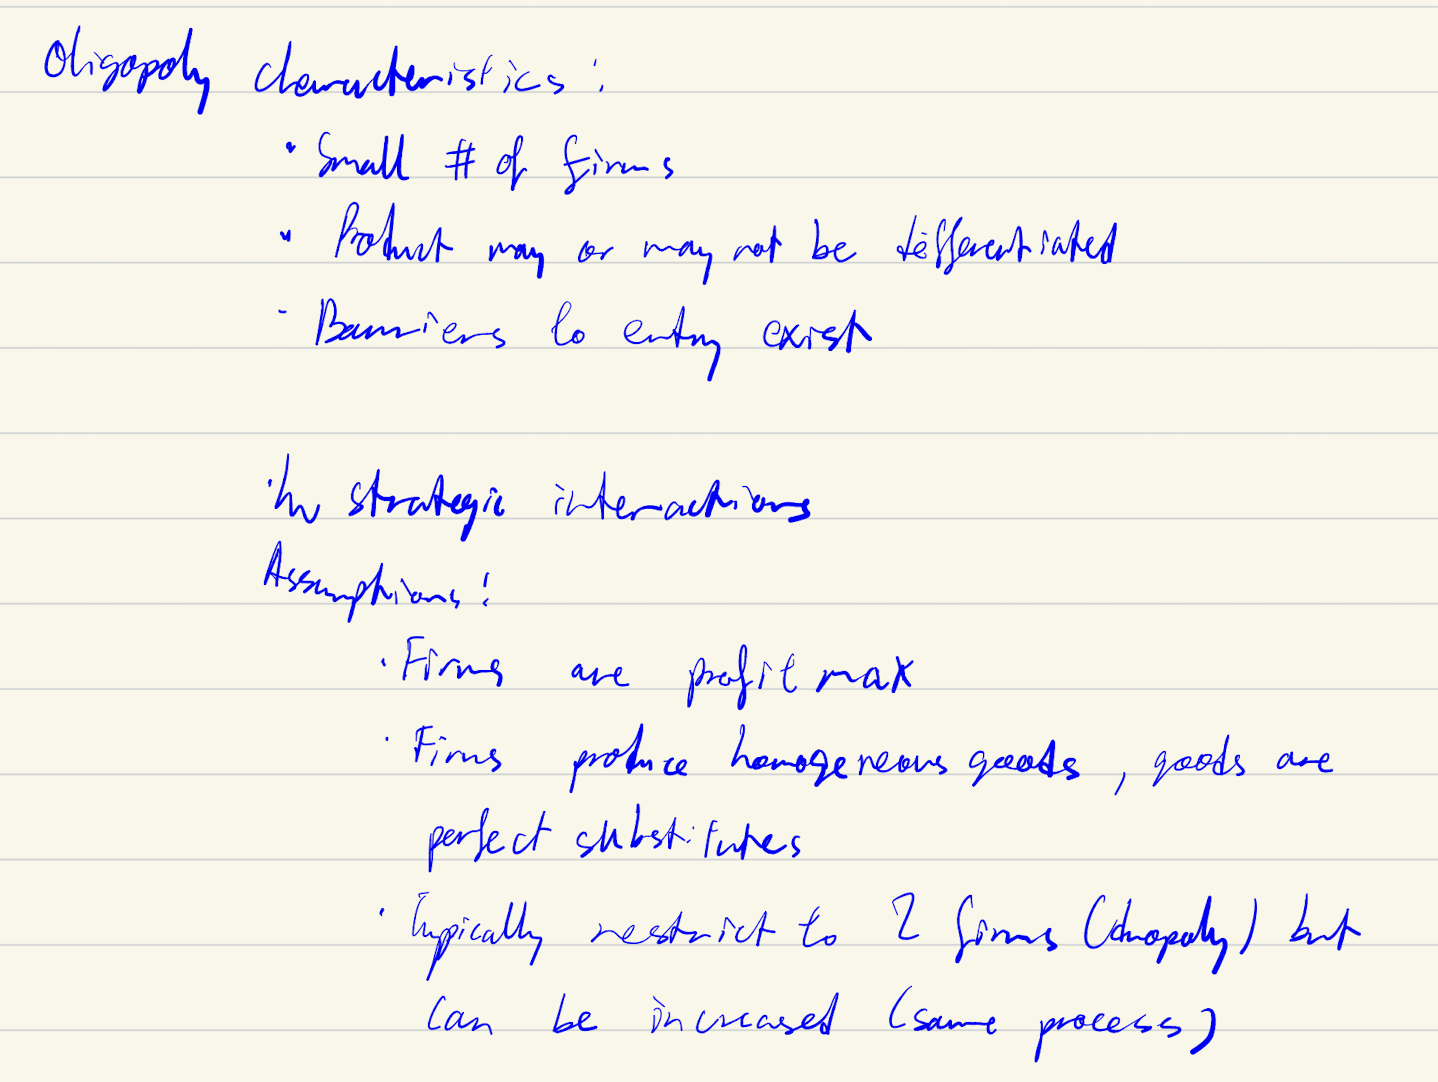 Oligopoly characteristics:
• Small # of firms
• Product may or may not be differentiated
- Barriers to entry exist
• In strategic interactions
Assumptions:
• Firms are profit max
• Firms produce homogeneous goods, goods are
perfect substitutes
• Typically restrict to 2 firms (duopoly) but
can be increased (same process)